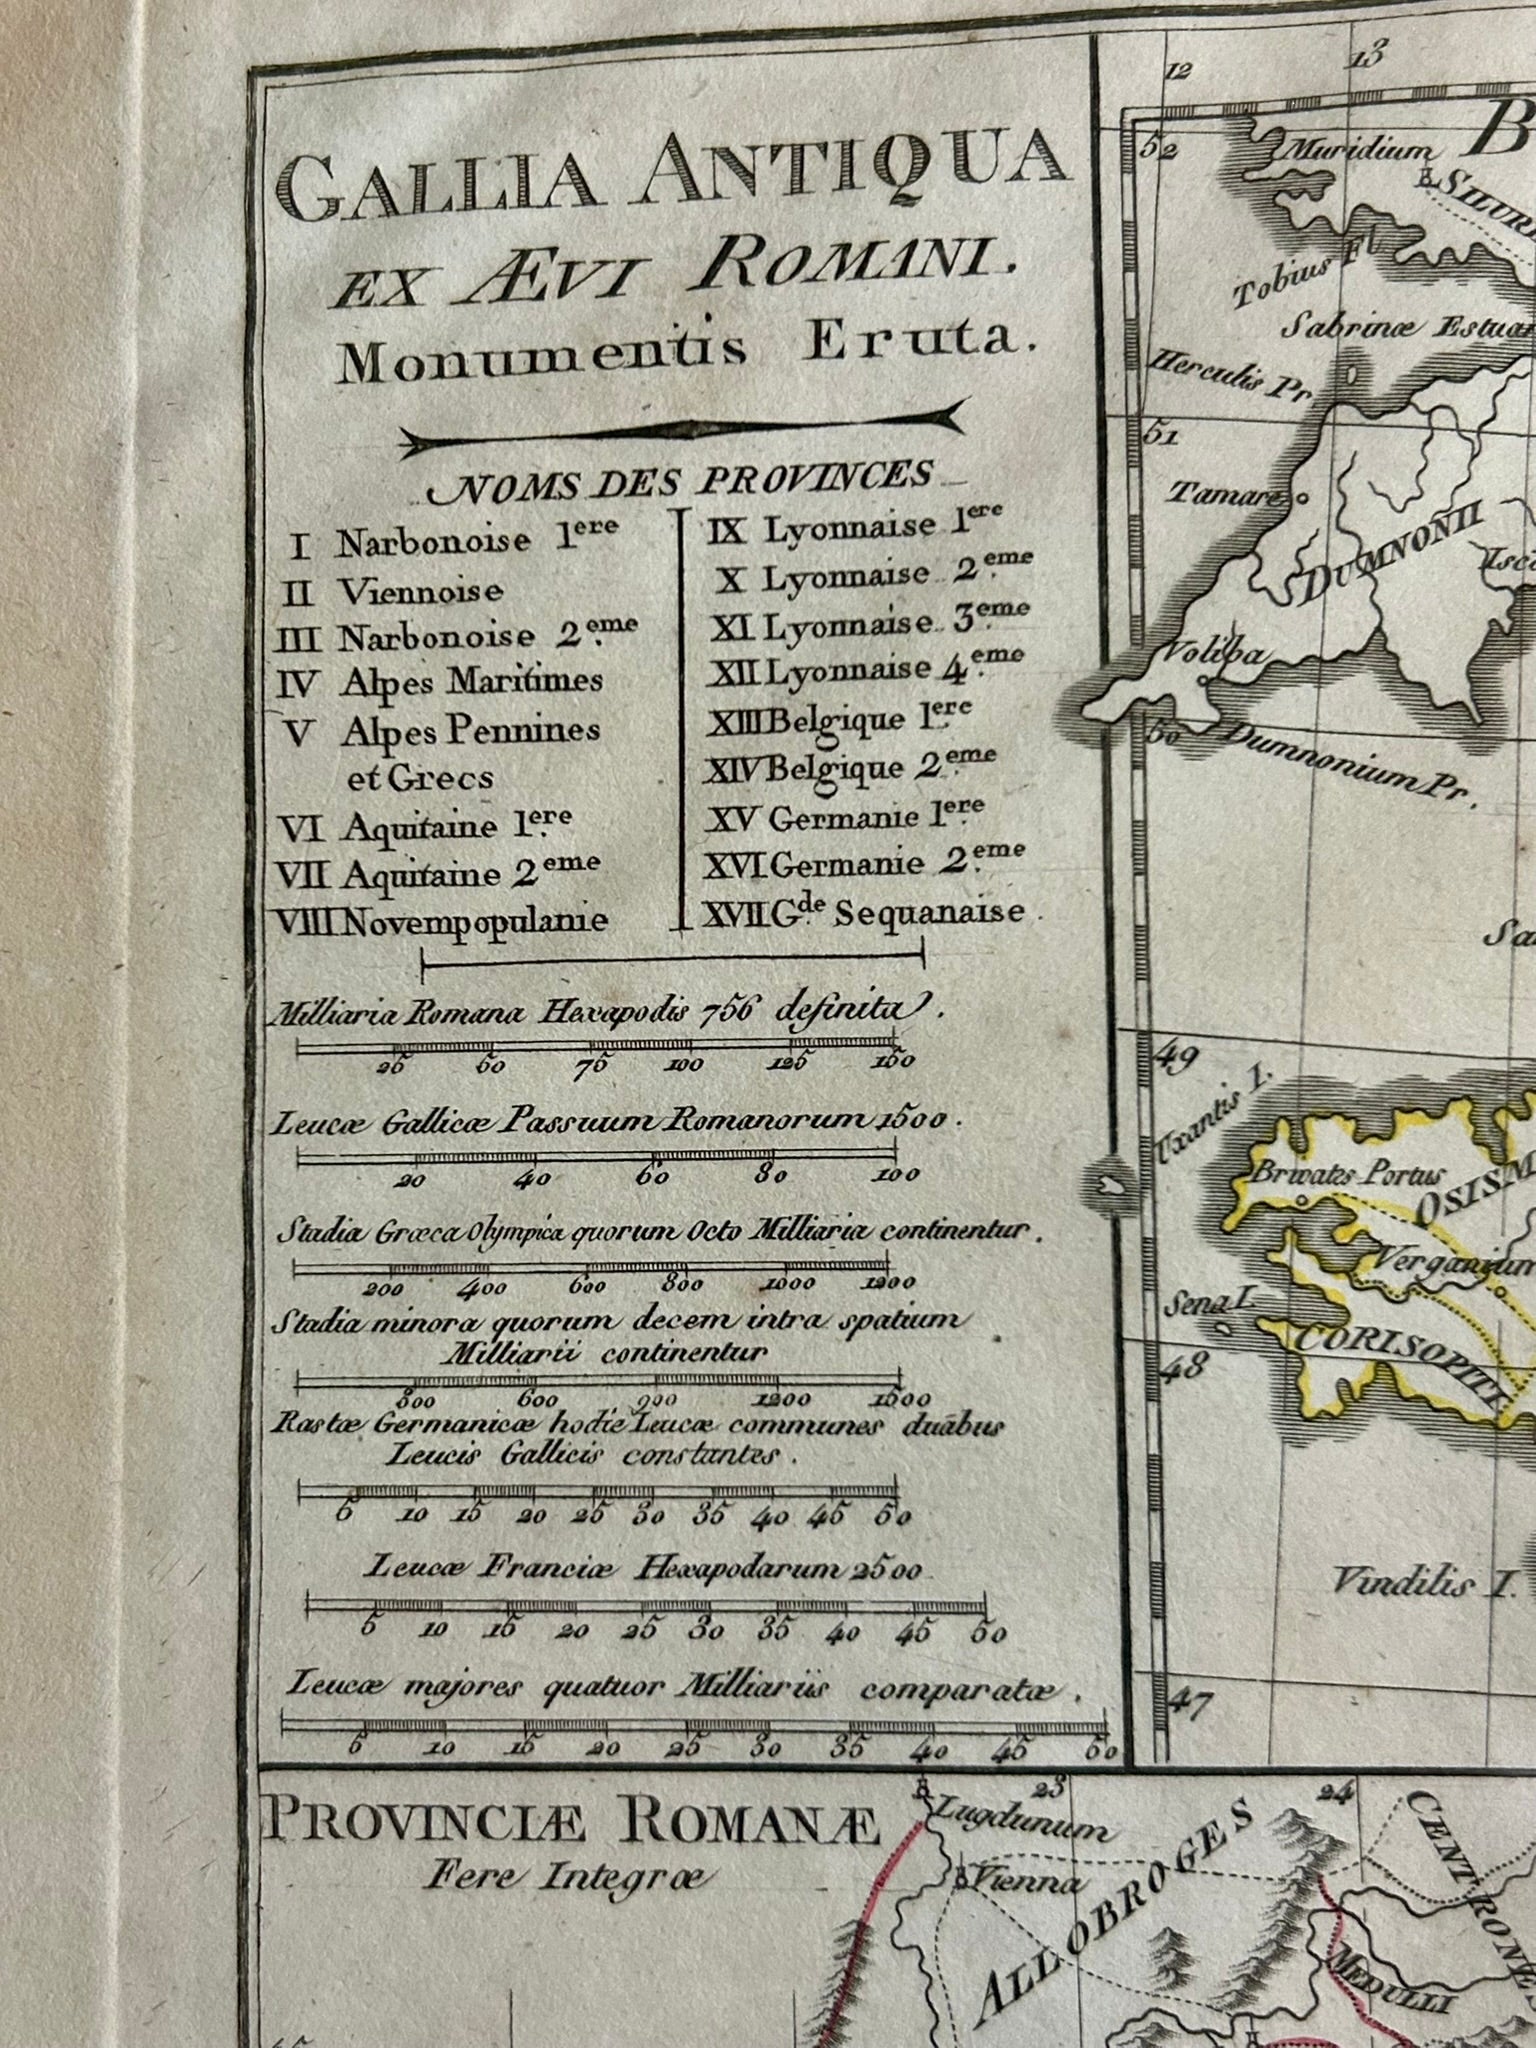 GALLIA ANTIQUA
EX ÆVI ROMANI.
Monumentis Eruta.
NOMS DES PROVINCES
I Narbonoise 1ere
II Viennoise
III Narbonoise 2eme
IV Alpes Maritimes
V Alpes Pennines
et Grecs
VI Aquitaine 1ere
VII Aquitaine 2eme
VIII Novempopulanie
IX Lyonnaise 1ere
X Lyonnaise 2eme
XI Lyonnaise 3eme
XII Lyonnaise 4eme
XIII Belgique 1ere
XIV Belgique 2eme
XV Germanie 1ere
XVI Germanie 2eme
XVII Gde Sequanaise.
Milliaria Romana Hexapodis 756 definita.
25 50 75 100 125 150
Leucæ Gallicæ Passuum Romanorum 1500.
20 40 60 80 100
Stadia Græca Olympica quorum Octo Milliaria continentur.
200 400 600 800 1000 1200
Stadia minora quorum decem intra spatium
Milliarii continentur
300 600 900 1200 1500
Rastæ Germanicæ hodie Leucæ communes duābus
Leucis Gallicis constantes.
5 10 15 20 25 30 35 40 45 50
Leucæ Franciæ Hexapodarum 2500
5 10 15 20 25 30 35 40 45 50
Leucæ majores quatuor Milliariis comparatæ.
5 10 15 20 25 30 35 40 45 50
12 13
52
Muridium
B
SILURE
Tobius Fl
Sabrinæ Estuar
Herculis Pr
51
Tamare
DUMNONII
Isca
Voliba
50
Dumnonium Pr.
Sa
49
Uxantis I.
Brivates Portus
OSISM
Verganium
Sena I.
CORISOPITI
48
Vindilis I.
47
PROVINCIÆ ROMANÆ
Fere Integræ
23 24
Lugdunum
Vienna
ALLOBROGES
CENTRONES
MEDULLI